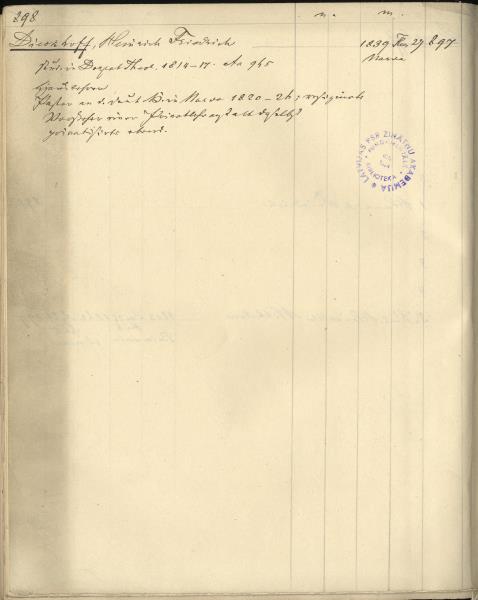 898
n. m.
Dieckhoff, Heinrich Friedrich 1839 27 897
Narva
stud. in Dorpat Theol. 1814-17. Aa 965
Hauslehrer
Pastor an d. deut. K. in Narva 1820-26; resignirte
Vorsteher einer Privatlehranstalt daselbst
privatisirte ebend.
LATVIJAS PSR ZINĀTŅU AKADĒMIJA
FUNDAMENTĀLĀ
BIBLIOTEKA